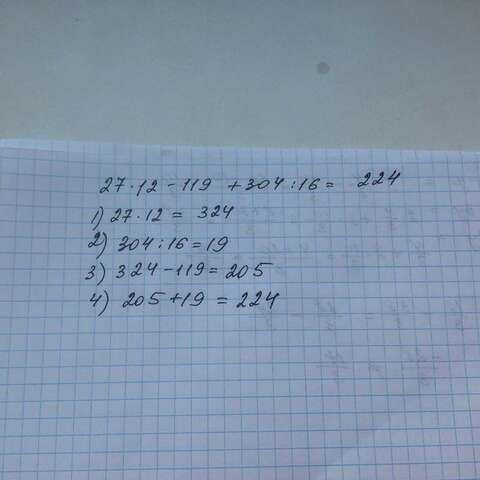 27·12-119 +304:16= 224
1) 27·12 = 324
2) 304:16=19
3) 324-119=205
4) 205+19 =224